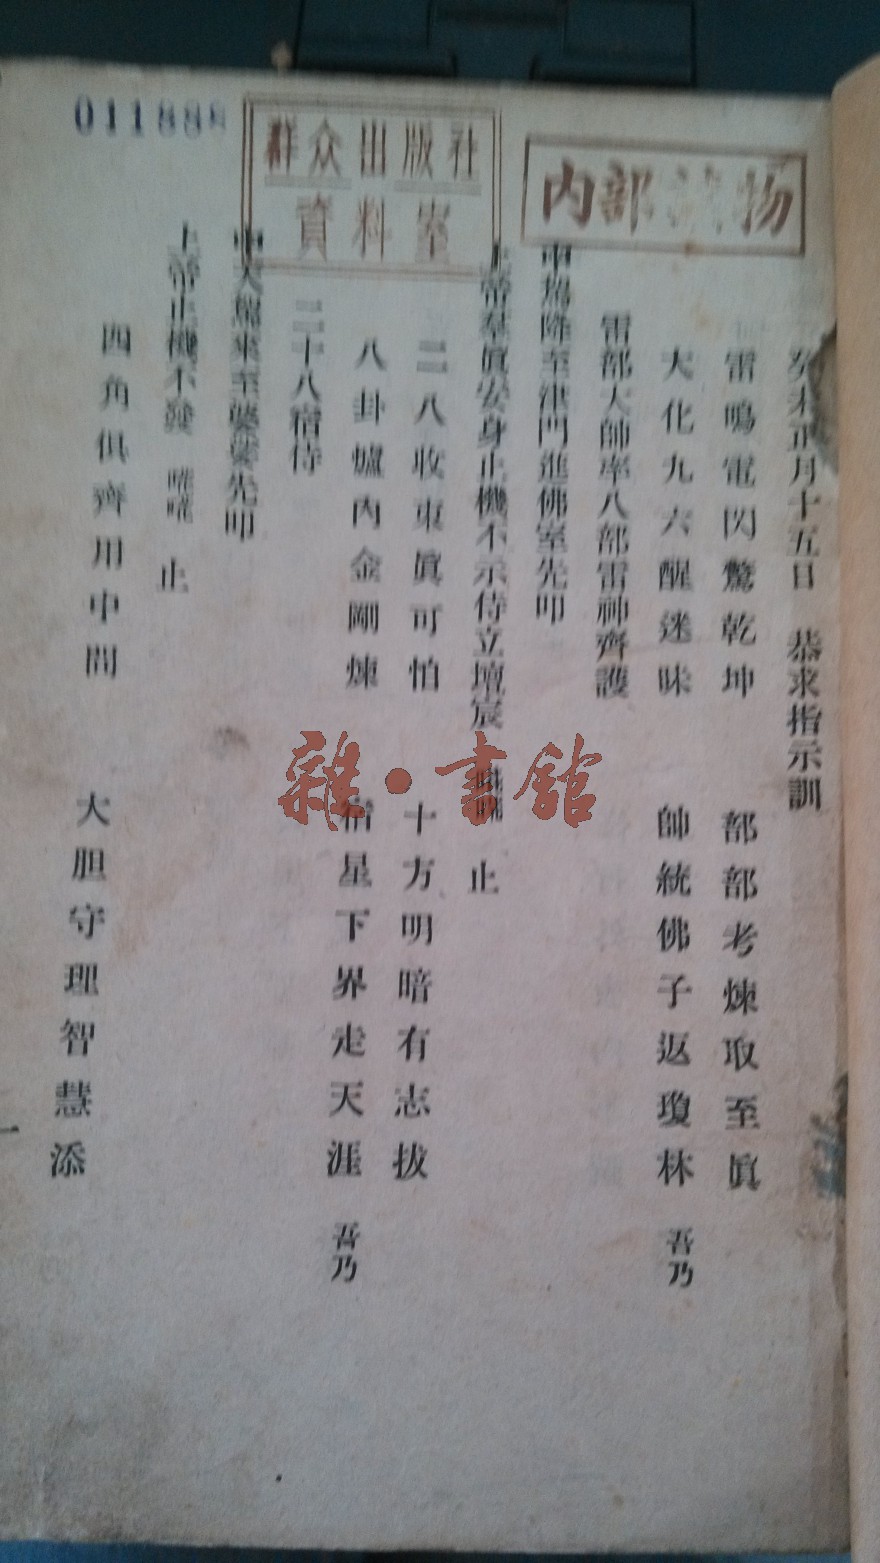 011888
群众出版社
資料室
内部读物
癸未正月十五日 恭求指示訓
雷鳴電閃驚乾坤 部部考煉取至眞
大化九六醒迷昧 帥統佛子返瓊林 吾乃
雷部大帥率八部雷神齊護
申爲降至津門進佛室先叩
上帝羣眞安身止機不示侍立壇宸 哦哦 止
二八收束眞可怕 十方明暗有志拔
八卦爐內金剛煉 宿星下界走天涯 吾乃
二十八宿侍
中天 來至 先叩
上帝止機不發 嗟嗟 止
四角俱齊用中間 大胆守理智慧添
一
雜·書館